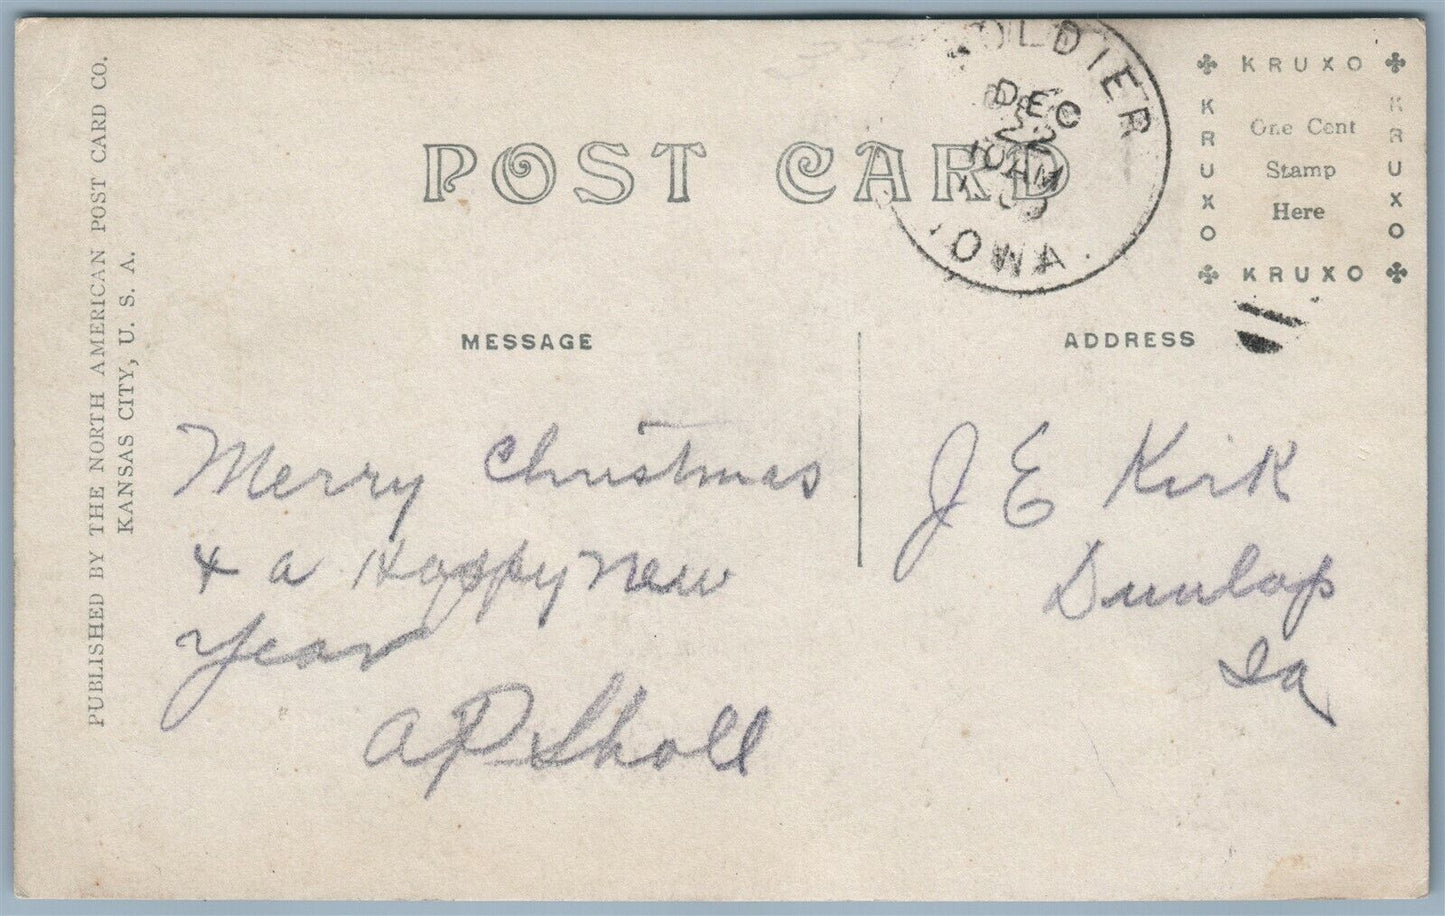 PUBLISHED BY THE NORTH AMERICAN POST CARD CO.
KANSAS CITY, U. S. A.
POST CARD
SOLDIER
DEC
22
10 AM
IOWA.
KRUXO
KRUXO
One Cent
Stamp
Here
KRUXO
KRUXO
MESSAGE
ADDRESS
Merry Christmas
+ a Happy New
Year
AP Sholl
J E Kirk
Dunlap
Ia